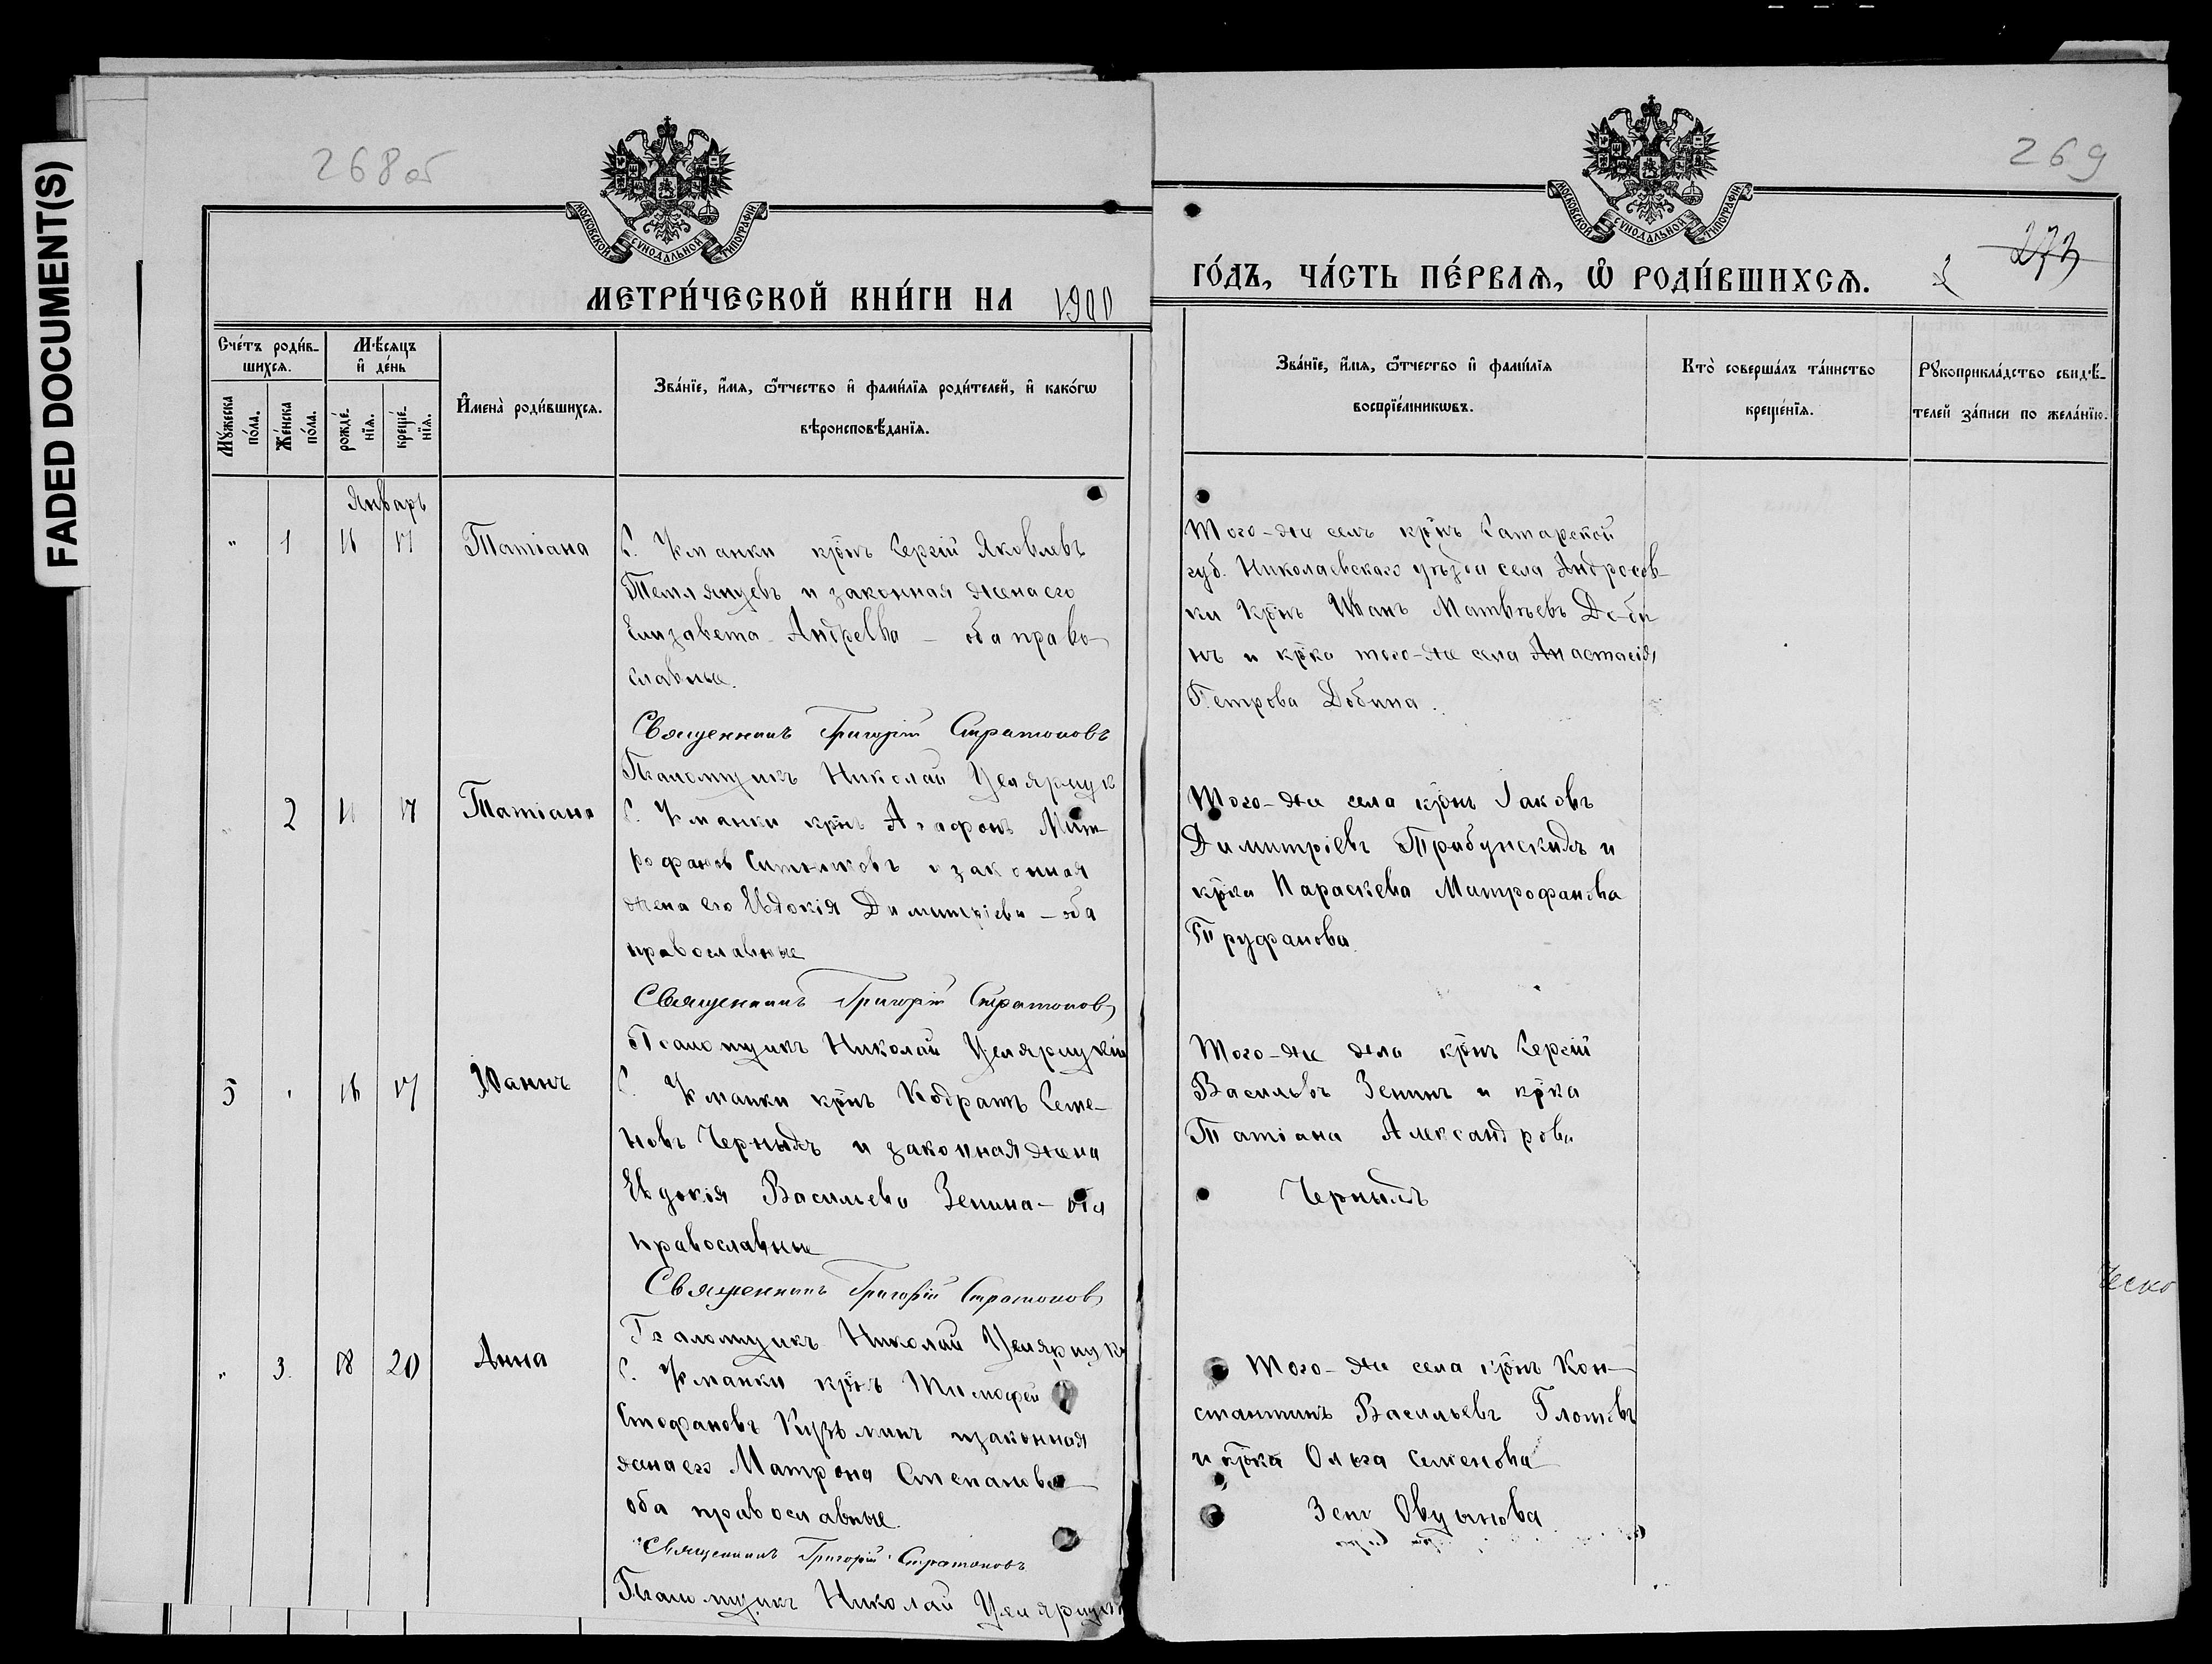 FADED DOCUMENT(S)
268об
МОСКОВСКОЙ СѴНОДАЛЬНОЙ ТИПОГРАФІИ
МЕТРИ́ЧЕСКОЙ КНИ́ГИ НА 1900
Сче́тъ роди́в-
шихсѧ.
Мѣ́сѧцъ
и҆ де́нь
Му́жеска
по́ла.
Же́нска
по́ла.
рожде́-
нїѧ.
креще́-
нїѧ.
И҆мена̀ роди́вшихсѧ.
Зва́нїе, и҆́мѧ, ѻ҆́тчество и҆ фами́лїѧ роди́телей, и҆ како́гѡ
вѣроисповѣ́данїѧ.
Январь
" 1 16 17 Татіана
С. Усманки крⷭ҇нъ Сергій Яковлевъ
и законная жена его
Елизавета Андреева — оба право-
славные.
Священникъ Григорій Стратоновъ
Псаломщикъ Николай
2 17 Татіана
С. Усманки крⷭ҇нъ Агафонъ Мит-
рофановъ Ситниковъ и законная
жена его Евдокія Димитріева — оба
православные
Священникъ Григорій Стратоновъ
Псаломщикъ Николай
5 " 16 17 Іоаннъ
С. Усманки крⷭ҇нъ Кодратъ Семе-
новъ Черныхъ и законная жена
Евдокія Васильева Зенина — оба
православные
Священникъ Григорій Стратоновъ
Псаломщикъ Николай
" 3. 18 20 Анна
С. Усманки крⷭ҇нъ Тимофей
Стефановъ Кузьминъ и законная
жена его Матрона Степанова
оба православные.
Священникъ Григорій Стратоновъ
Псаломщикъ Николай
269
273
3
МОСКОВСКОЙ СѴНОДАЛЬНОЙ ТИПОГРАФІИ
ГО́ДЪ, ЧА́СТЬ ПЕ́РВАѦ, Ѡ҆ РОДИ́ВШИХСѦ.
Зва́нїе, и҆́мѧ, ѻ҆́тчество и҆ фами́лїѧ
воспрїе́мникѡвъ.
Кто̀ соверша́лъ та́инство
креще́нїѧ.
Рꙋкоприкла́дство свидѣ́-
телей за́писи по жела́нїю.
Того-же села крⷭ҇нъ Самарской
губ. Николаевскаго уѣзда села Андросов-
ки крⷭ҇нъ Иванъ Матвѣевъ До-би
нъ и крⷭ҇ка того-же села Анастасія
Петрова Добина.
Того-же села крⷭ҇нъ Іаковъ
Димитріевъ Трибунскихъ и
крⷭ҇ка Параскева Митрофанова
Труфанова
Того-же села крⷭ҇нъ Сергій
Васильевъ Зенинъ и крⷭ҇ка
Татіана Александрова
Черныхъ
Того-же села крⷭ҇нъ Кон-
стантинъ Васильевъ Глотовъ
и крⷭ҇ка Ольга Семенова
Овчинова